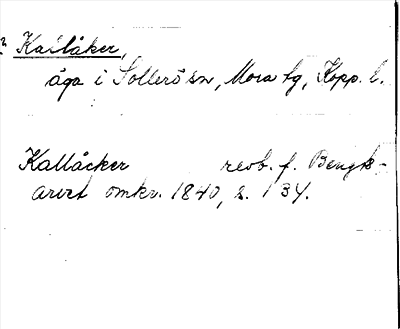 Kallåker,
äga i Sollerö sn, Mora tg, Kopp. l.
Kallåcker revb. f. Bengk-
arvet omkr. 1840, s. 134.